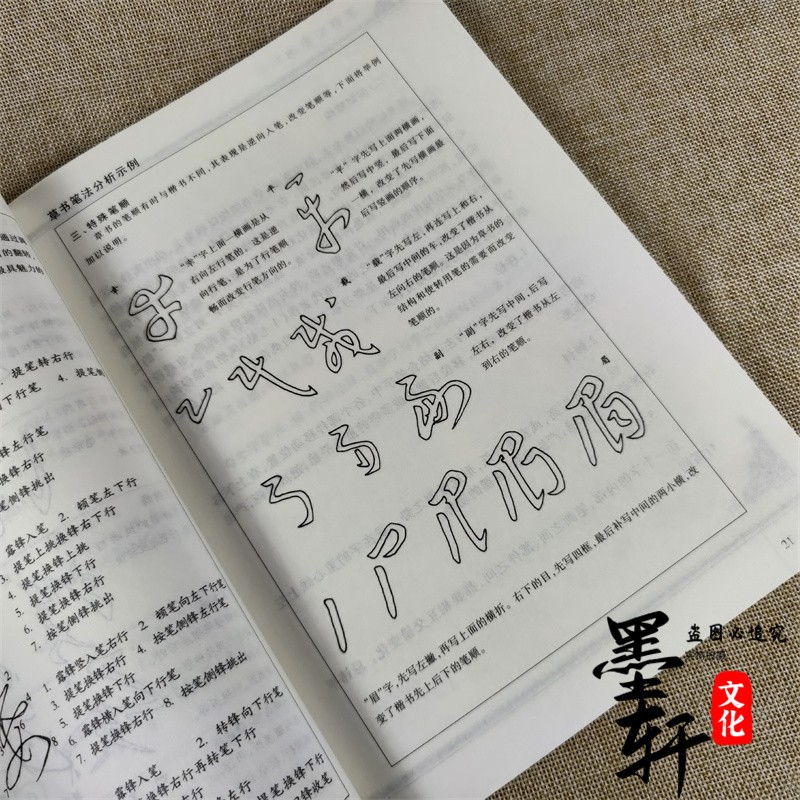 草书笔法分析示例
三、特殊笔顺
草书的笔顺有时与楷书不同,其表现是逆向入笔,改变笔顺等,下面将举例
加以说明。
幸
“幸”字上面一横画是从
右向左行笔的,这是逆
向行笔,是为了行笔顺
畅而改变行笔方向的。
字先写上面两横画,
然后写中竖,最后写下面
一横,改变了先写横画最
后写竖画的顺序。
载
“载”字先写左,再连写上和右,
最后写中间的车,改变了楷书从
左向右的笔顺。这是因为草书的
结构和使转用笔的需要而改变
笔顺的。
副
“副”字先写中间,后写
左右,改变了楷书从左
到右的笔顺。
眉
“眉”字,先写左撇,再写上面的横折。右下的目,先写四框,最后补写中间的两小横,改
变了楷书先上后下的笔顺。
21
提笔转右行
向下行笔
锋左行笔
换锋右行
笔侧锋挑出
露锋入笔 2. 顿笔左下行
3. 提笔上挑换锋右下行
4. 提笔换锋上挑
5. 提笔换锋下行
6. 提笔换锋右行
7. 按笔侧锋挑出
1. 露锋竖入笔右行 2. 顿笔向左下行笔
3. 提笔换锋右行 4. 按笔侧锋左行笔
5. 提笔换锋下行
6. 露锋横入笔向下行笔
7. 提笔换锋右行 8. 按笔侧锋挑出
露锋入笔 2. 转锋向下行笔
提笔换锋右行再转笔下行
墨轩
文化
盗图必追究